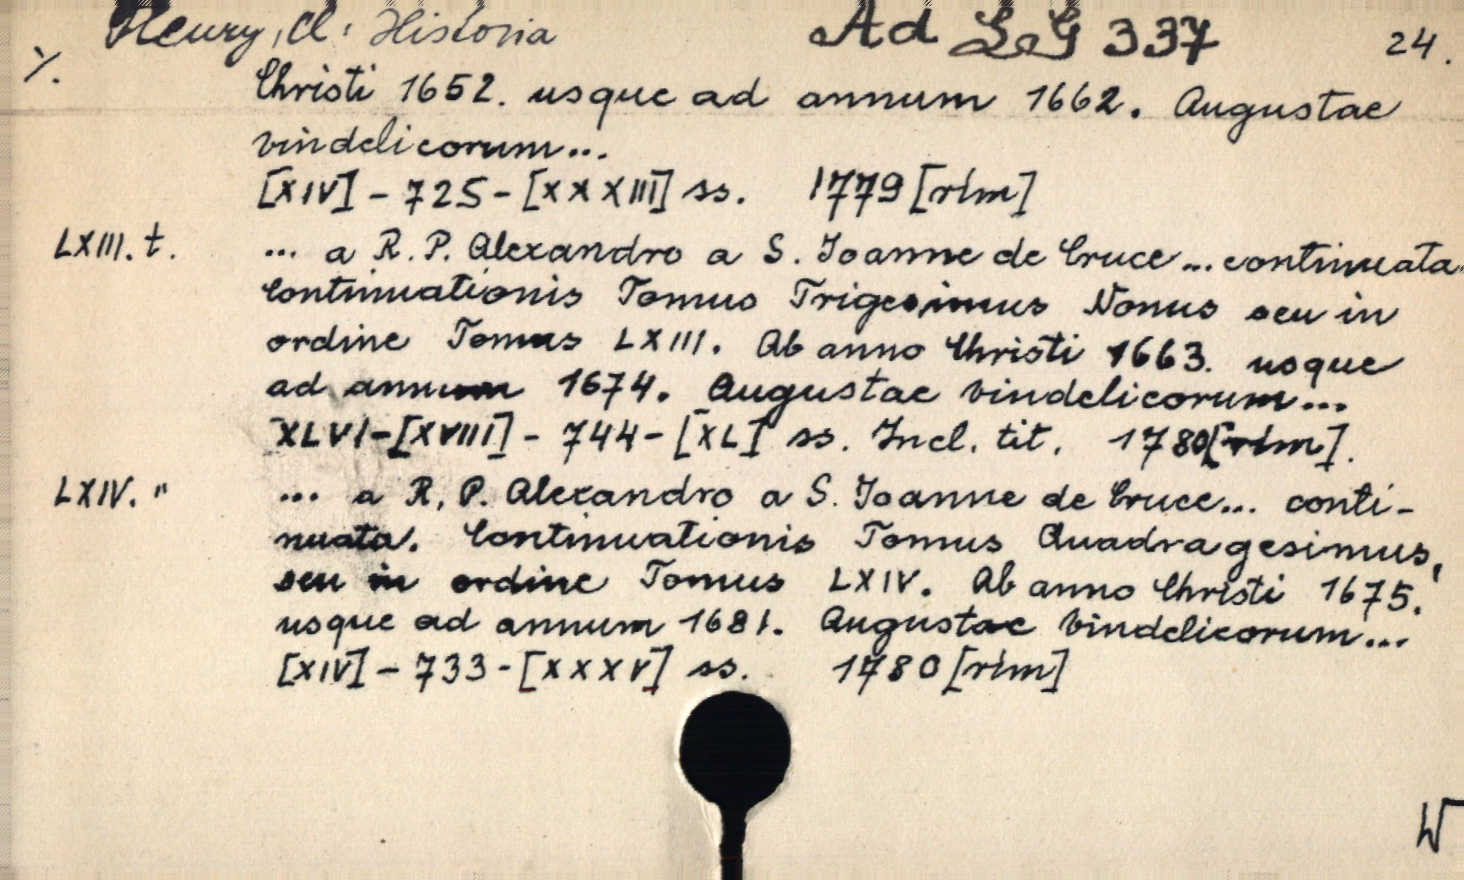 Fleury, Cl: Historia Ad LG 337 24.
%.
Christi 1652. usque ad annum 1662. Augustae
vindelicorum...
[XIV] - 725 - [XXXIII] ss. 1779 [rim]
LXIII. t. ... a R. P. Alexandro a S. Joanne de Cruce ... continuata.
Continuationis Tomus Trigesimus Nonus seu in
ordine Tomus LXIII. Ab anno Christi 1663. usque
ad annum 1674. Augustae vindelicorum...
XLVI-[XVIII] - 744 - [XL] ss. Incl. tit. 1780 [rim].
LXIV. " ... a R. P. Alexandro a S. Joanne de Cruce... conti-
nuata. Continuationis Tomus Quadragesimus,
seu in ordine Tomus LXIV. Ab anno Christi 1675.
usque ad annum 1681. Augustae vindelicorum...
[XIV] - 733 - [XXXV] ss. 1780 [rim]
W